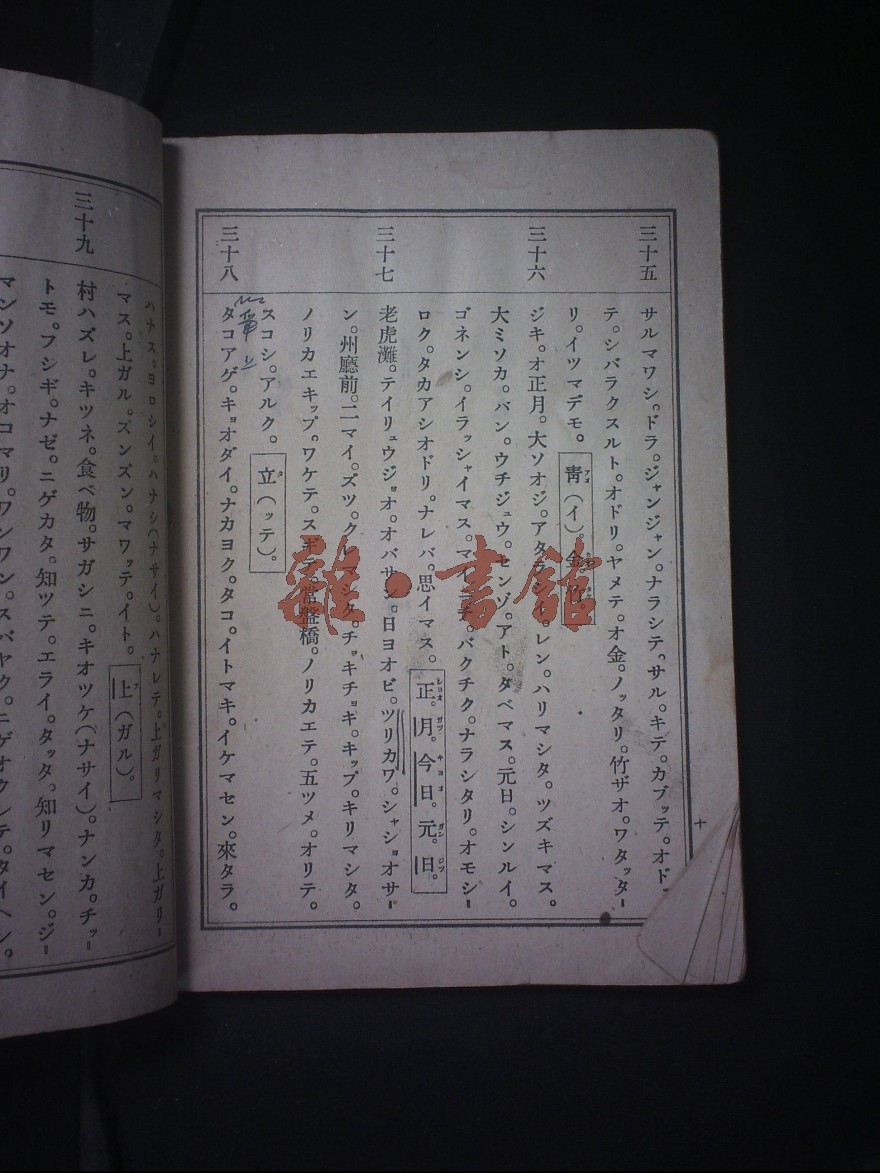 三十五
サルマワシ。ドラ。ジャンジャン。ナラシテ。サル。キテ。カブッテ。オド-
テ。シバラクスルト。オドリ。ヤメテ。オ金。ノッタリ。竹ザオ。ワタッタ-
リ。イツマデモ。青(イ)。金。
三十六
ジキ。オ正月。大ソオジ。アタラシイ。レン。ハリマシタ。ツズキマス。
大ミソカ。バン。ウチジュウ。センゾ。アト。タベマス。元日。シンルイ。
ゴネンシ。イラッシャイマス。バクチク。ナラシタリ。オモシ-
ロク。タカアシオドリ。ナレバ。思イマス。正。月。今日。元。旧。
三十七
老虎灘。テイリュウジョオ。オバサン。日ヨオビ。ツリカワ。シャショオサ-
ン。州廳前。二マイ。ズツ。クレマシタ。チョキチョキ。キップ。キリマシタ。
ノリカエキップ。ワケテ。スギテ。常盤橋。ノリカエテ。五ツメ。オリテ。
スコシ。アルク。立(ッテ)。
三十八
タコアゲ。キョオダイ。ナカヨク。タコ。イトマキ。イケマセン。來タラ。
十
ハナス。ヨロシイ。ハナシ(ナサイ)。ハナレテ。上ガリマシタ。上ガリ-
マス。上ガル。ズンズン。マワッテ。イト。上(ガル)。
三十九
村ハズレ。キツネ。食ベ物。サガシニ。キオツケ(ナサイ)。ナンカ。チッ-
トモ。フシギ。ナゼ。ニゲカタ。知ッテ。エライ。タッタ。知リマセン。ジ-
マンソオナ。オコマリ。ワンワン。スバヤク。ニゲオクレテ。タイヘン。
雜·書館